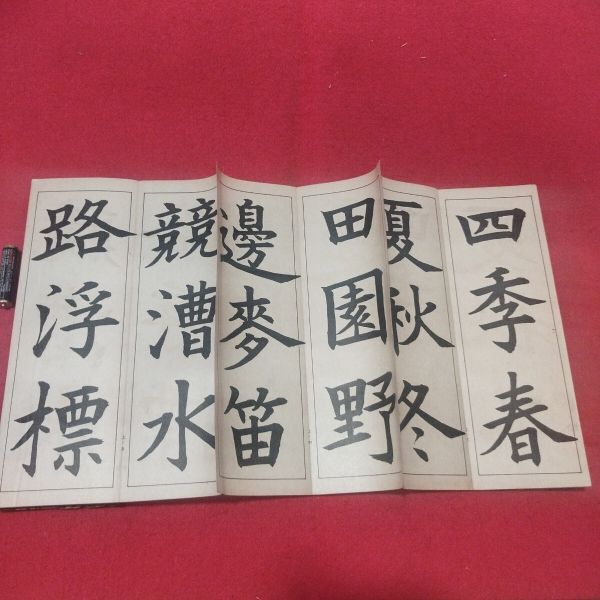 四季春
夏秋冬
田園野
邊麥笛
競漕水
路浮標